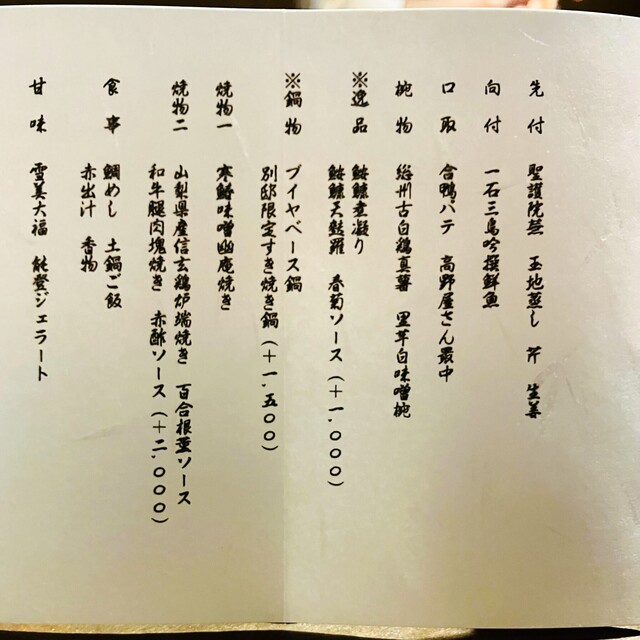 先付 聖護院蕪 玉地蒸し 芹 生姜
向付 一石三鳥吟撰鮮魚
口取 合鴨パテ 高野屋さん最中
椀物 総州古白鶏真薯 里芋白味噌椀
※逸品 鮟鱇煮凝り
鮟鱇天麩羅 春菊ソース(+一,〇〇〇)
※鍋物 ブイヤベース鍋
別邸限定すき焼き鍋(+一,五〇〇)
焼物一 寒鰆味噌幽庵焼き
焼物二 山梨県産信玄鶏炉端焼き 百合根葱ソース
和牛腿肉塊焼き 赤酢ソース(+二,〇〇〇)
食事 鯛めし 土鍋ご飯
赤出汁 香物
甘味 雪美大福 能登ジェラート